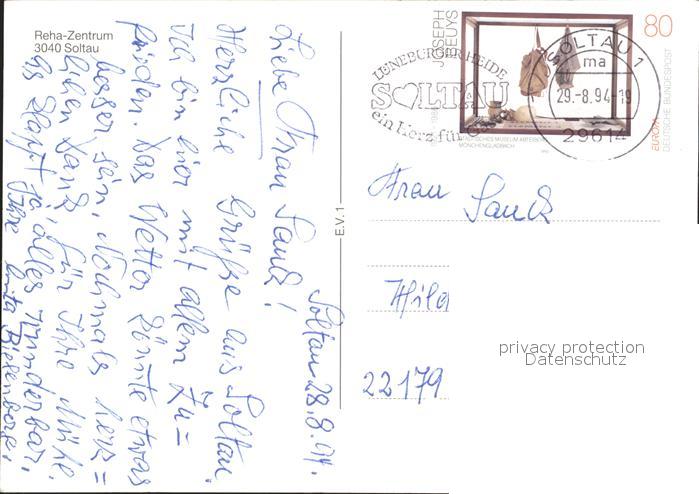 Reha-Zentrum
3040 Soltau
Soltau 28.8.94.
Liebe Frau Sauck!
Herzliche Grüße aus Soltau.
Ich bin hier mit allem zu=
frieden. Das Wetter könnte etwas
besser sein. Nochmals herz=
lichen Dank für Ihre Mühe.
Es klappt ja alles wunderbar.
Ihre
E.V. 1
JOSEPH
BEUYS
80
DEUTSCHE BUNDESPOST
EUROPA
MÖNCHENGLADBACH
LÜNEBURGER HEIDE
SOLTAU
ein Herz für
SOLTAU 1
ma
29.-8.94-19
29614
Frau
Sauck
Hild
22179
privacy protection
Datenschutz